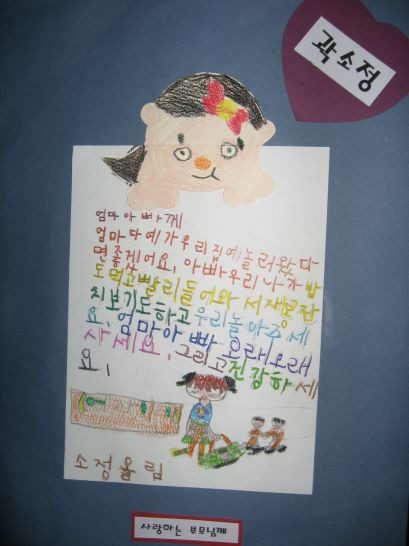 곽소정
엄마아빠께
엄마다예가우리집에놀러왔다
면좋게어요, 아빠우리나가밥
도먹고빨리들어와서재롱잔
치보기도하고우리놀아주세
요, 엄마아빠오래오래
사세요, 그리고건강하세
요,
소정올림
사랑하는 부모님께